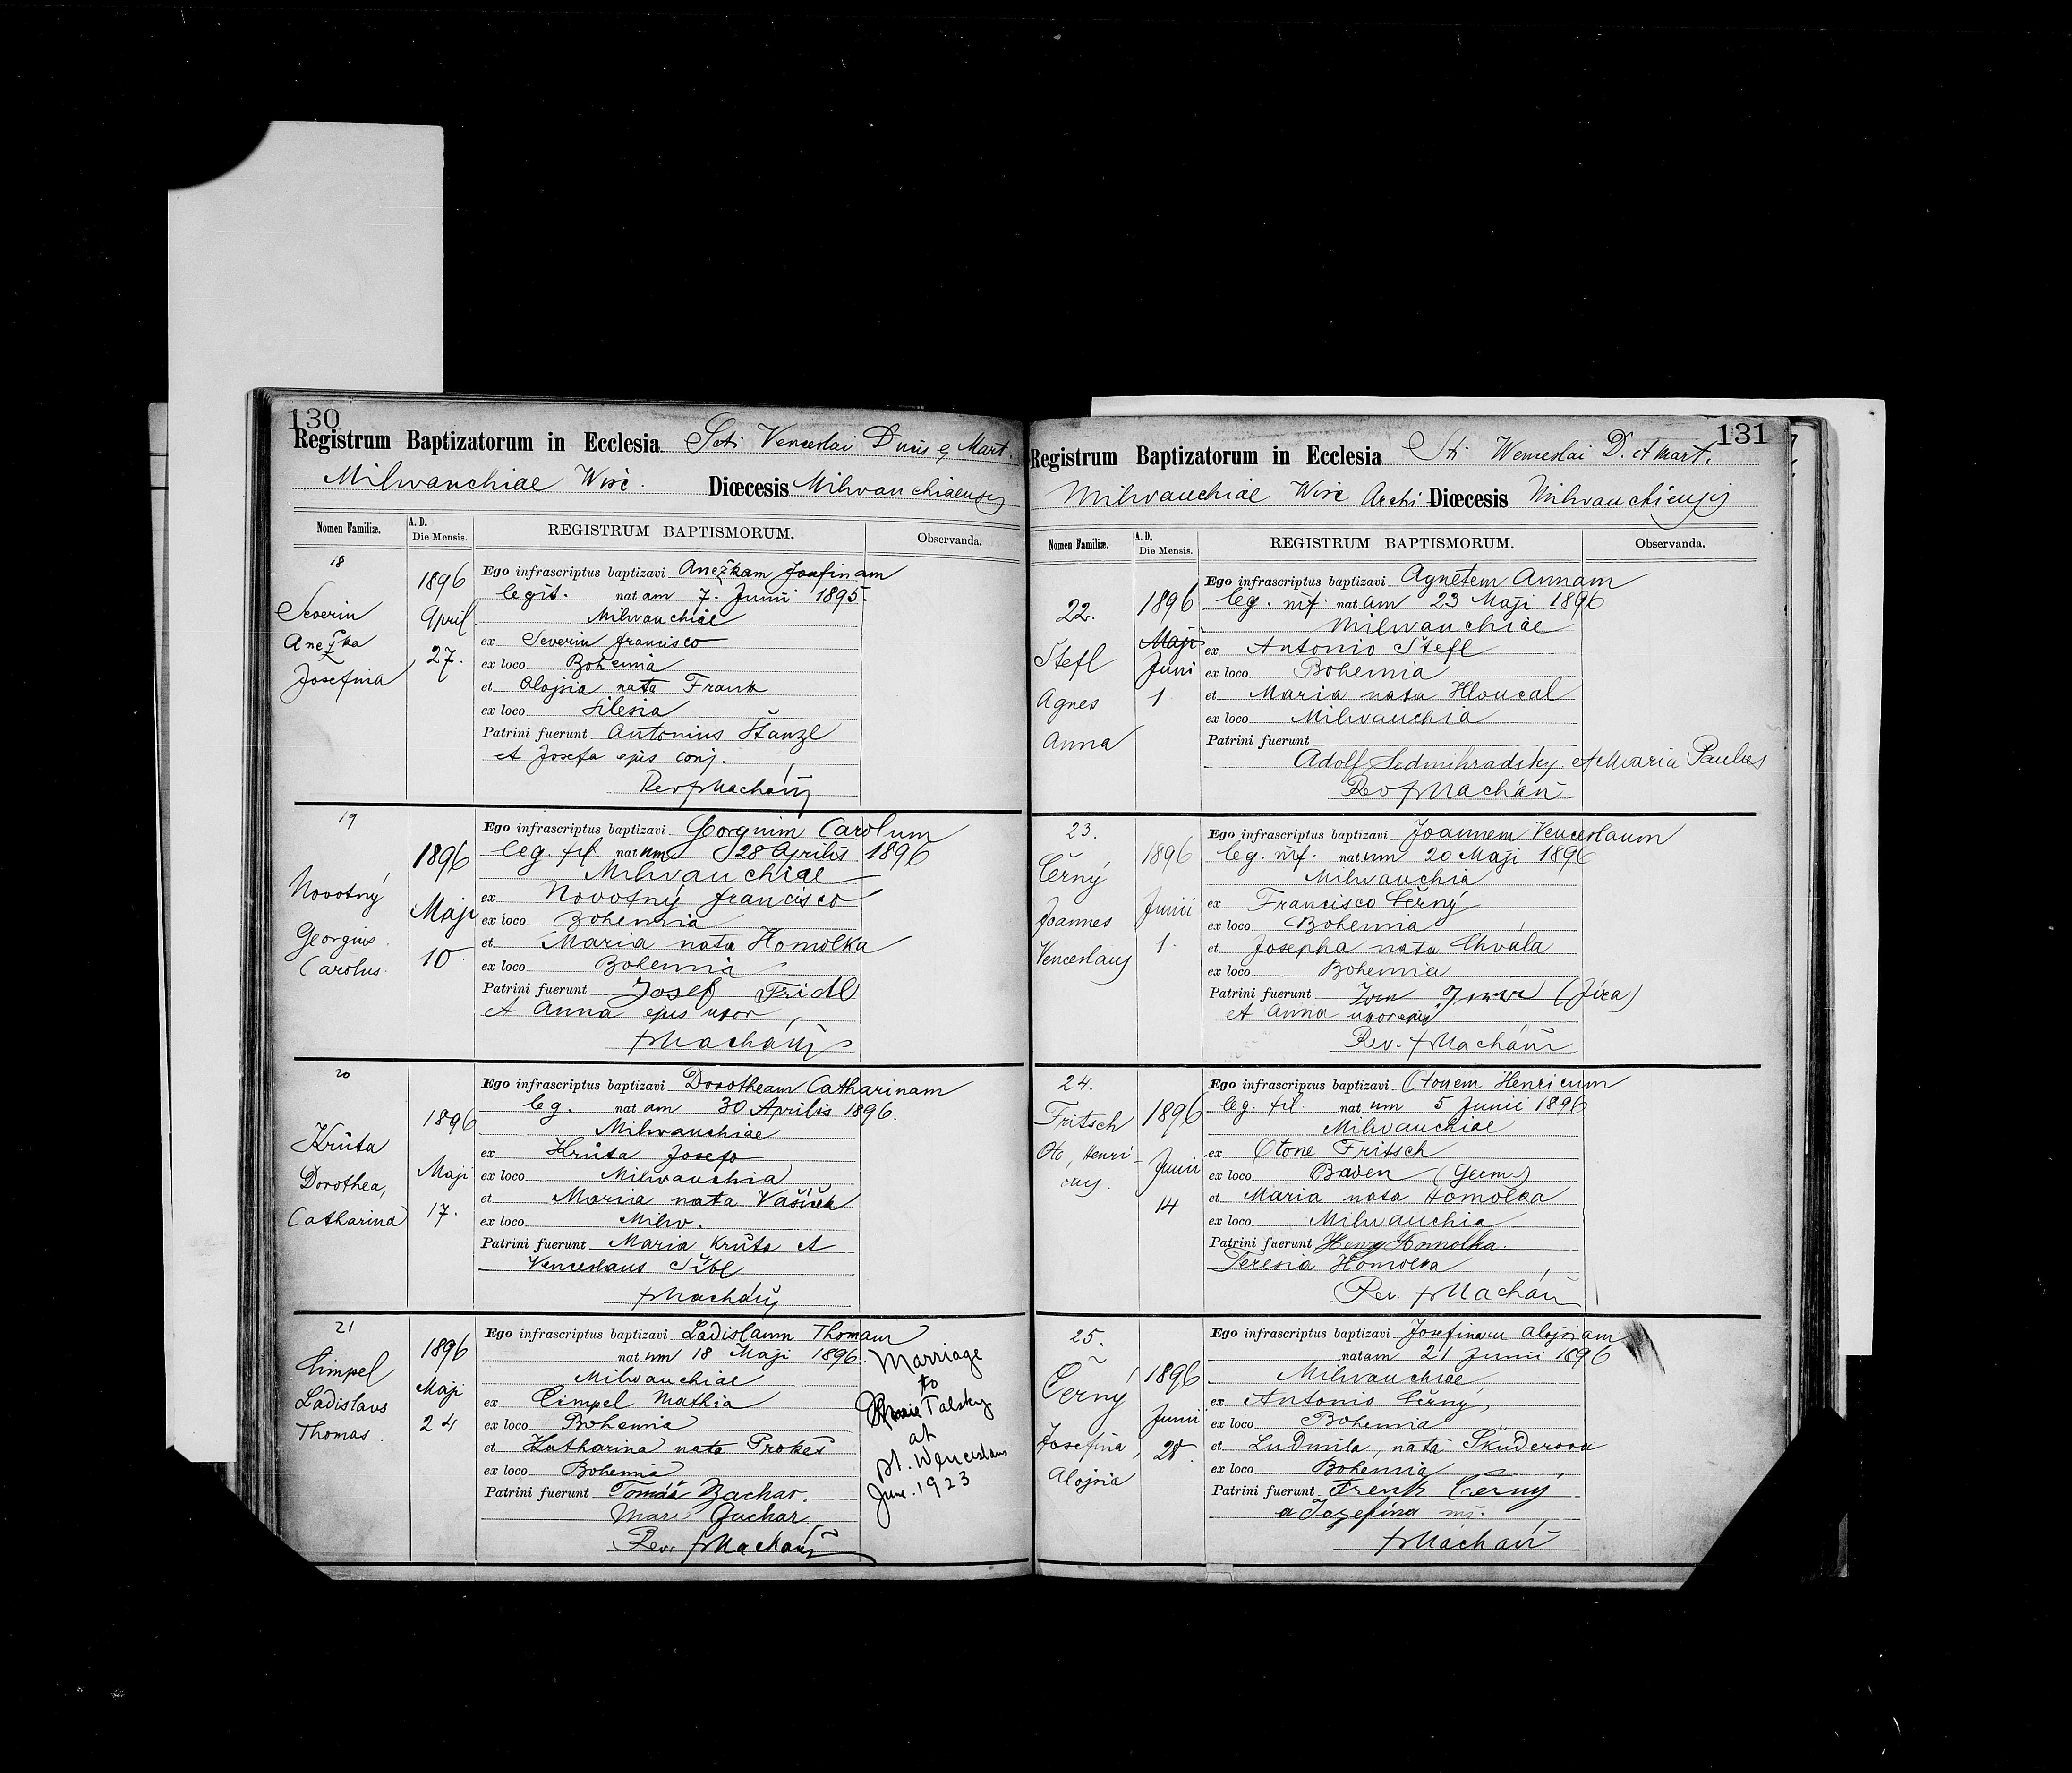 130
Registrum Baptizatorum in Ecclesia Scti Venceslai Ducis & Mart.
Milwauchiae Wisc. Diœcesis Milwauchiaensis
Nomen Familiæ. A. D. Die Mensis. REGISTRUM BAPTISMORUM. Observanda.
18
Severin
Anežka
Josefina
1896
April
27.
Ego infrascriptus baptizavi Anežkam Josefinam
legit. natam 7. Junii 1895.
Milwauchiae
ex Severin Francisco
ex loco Bohemia
et Alojsia nata Frank
ex loco Silesia
Patrini fuerunt Antonius Štanzl
et Josefa ejus conj.
Rev f Macháň
19
Novotný
Georgius
Carolus
1896
Maji
10
Ego infrascriptus baptizavi Georgium Carolum
leg. fil. natum 28 Aprilis 1896
Milwauchiae
ex Novotný Francisco
ex loco Bohemia
et Maria nata Homolka
ex loco Bohemia
Patrini fuerunt Josef Fridl
et Anna ejus uxor
f Macháň
20
Krůta
Dorothea,
Catharina
1896
Maji
17.
Ego infrascriptus baptizavi Dorotheam Catharinam
leg. natam 30 Aprilis 1896.
Milwauchiae
ex Krůta Josefo
ex loco Milwauchia
et Maria nata Vašíček
ex loco Milw.
Patrini fuerunt Maria Krůta et
Venceslaus Šíbl
f Macháň
21
Cimpel
Ladislaus
Thomas.
1896
Maji
24
Ego infrascriptus baptizavi Ladislaum Thomam
natum 18 Maji 1896.
Milwauchiae
ex Cimpel Mathia
ex loco Bohemia
et Katharina nata Prokeš
ex loco Bohemia
Patrini fuerunt Tomáš Zachar.
Mari Zuchar.
Rev. f Macháň
Marriage
to
Talsky
at
St. Wenceslaus
June. 1923
131
Registrum Baptizatorum in Ecclesia Sti Wenceslai D. et Mart.
Milwauchiae Wisc Archi Diœcesis Milwauchiensis
Nomen Familiæ. A. D. Die Mensis. REGISTRUM BAPTISMORUM. Observanda.
22.
Štefl
Agnes
Anna
1896
Maji
Juni
1
Ego infrascriptus baptizavi Agnetem Annam
leg. inf. natam 23 Maji 1896
Milwauchiae
ex Antonio Štefl
ex loco Bohemia
et Maria nata Hloucal
ex loco Milwauchia
Patrini fuerunt
Adolf Sedmihradsky et Maria Paulus
Rev f Macháň
23.
Černý
Joannes
Venceslaus
1896
Junii
1.
Ego infrascriptus baptizavi Joannem Venceslaum
leg. inf. natum 20 Maji 1896
Milwauchia
ex Francisco Černý
ex loco Bohemia
et Josepha nata Chvála
ex loco Bohemia
Patrini fuerunt (Jíra)
et Anna uxor ejus
Rev. f Macháň
24.
Fritsch
Oto, Henri-
cus.
1896
Junii
14
Ego infrascriptus baptizavi Otonem Henricum
leg. fil. natum 5 Junii 1896
Milwauchiae
ex Otone Fritsch
ex loco Baden (Germ)
et Maria nata Homolka
ex loco Milwauchia
Patrini fuerunt Henry Homolka.
Teresia Homolka
Rev. f Macháň
25.
Černý
Josefina,
Alojsia
1896
Junii
28.
Ego infrascriptus baptizavi Josefinam Alojsiam
natam 21 Junii 1896
Milwauchiae
ex Antonio Černý
ex loco Bohemia
et Ludmila, nata Škuderova
ex loco Bohemia
Patrini fuerunt Frenk Černý
a Jozefína
f Macháň